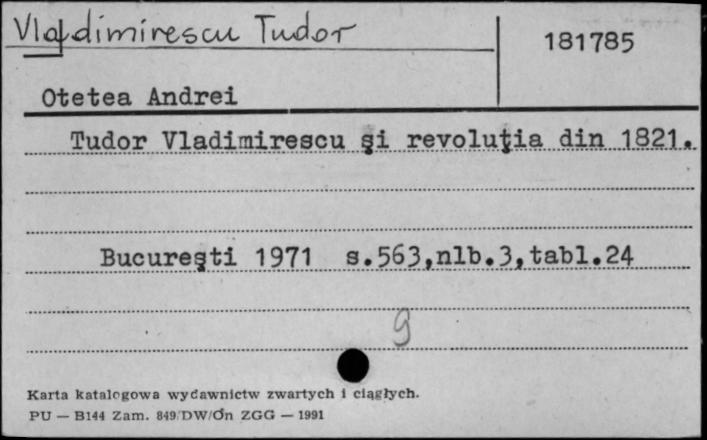 Vladimirescu Tudor
181785
Otetea Andrei
Tudor Vladimirescu şi revoluţia din 1821.
Bucureşti 1971 s.563,nlb.3,tabl.24
9
Karta katalogowa wydawnictw zwartych i ciągłych.
PU — B144 Zam. 849/DW/Ón ZGG — 1991